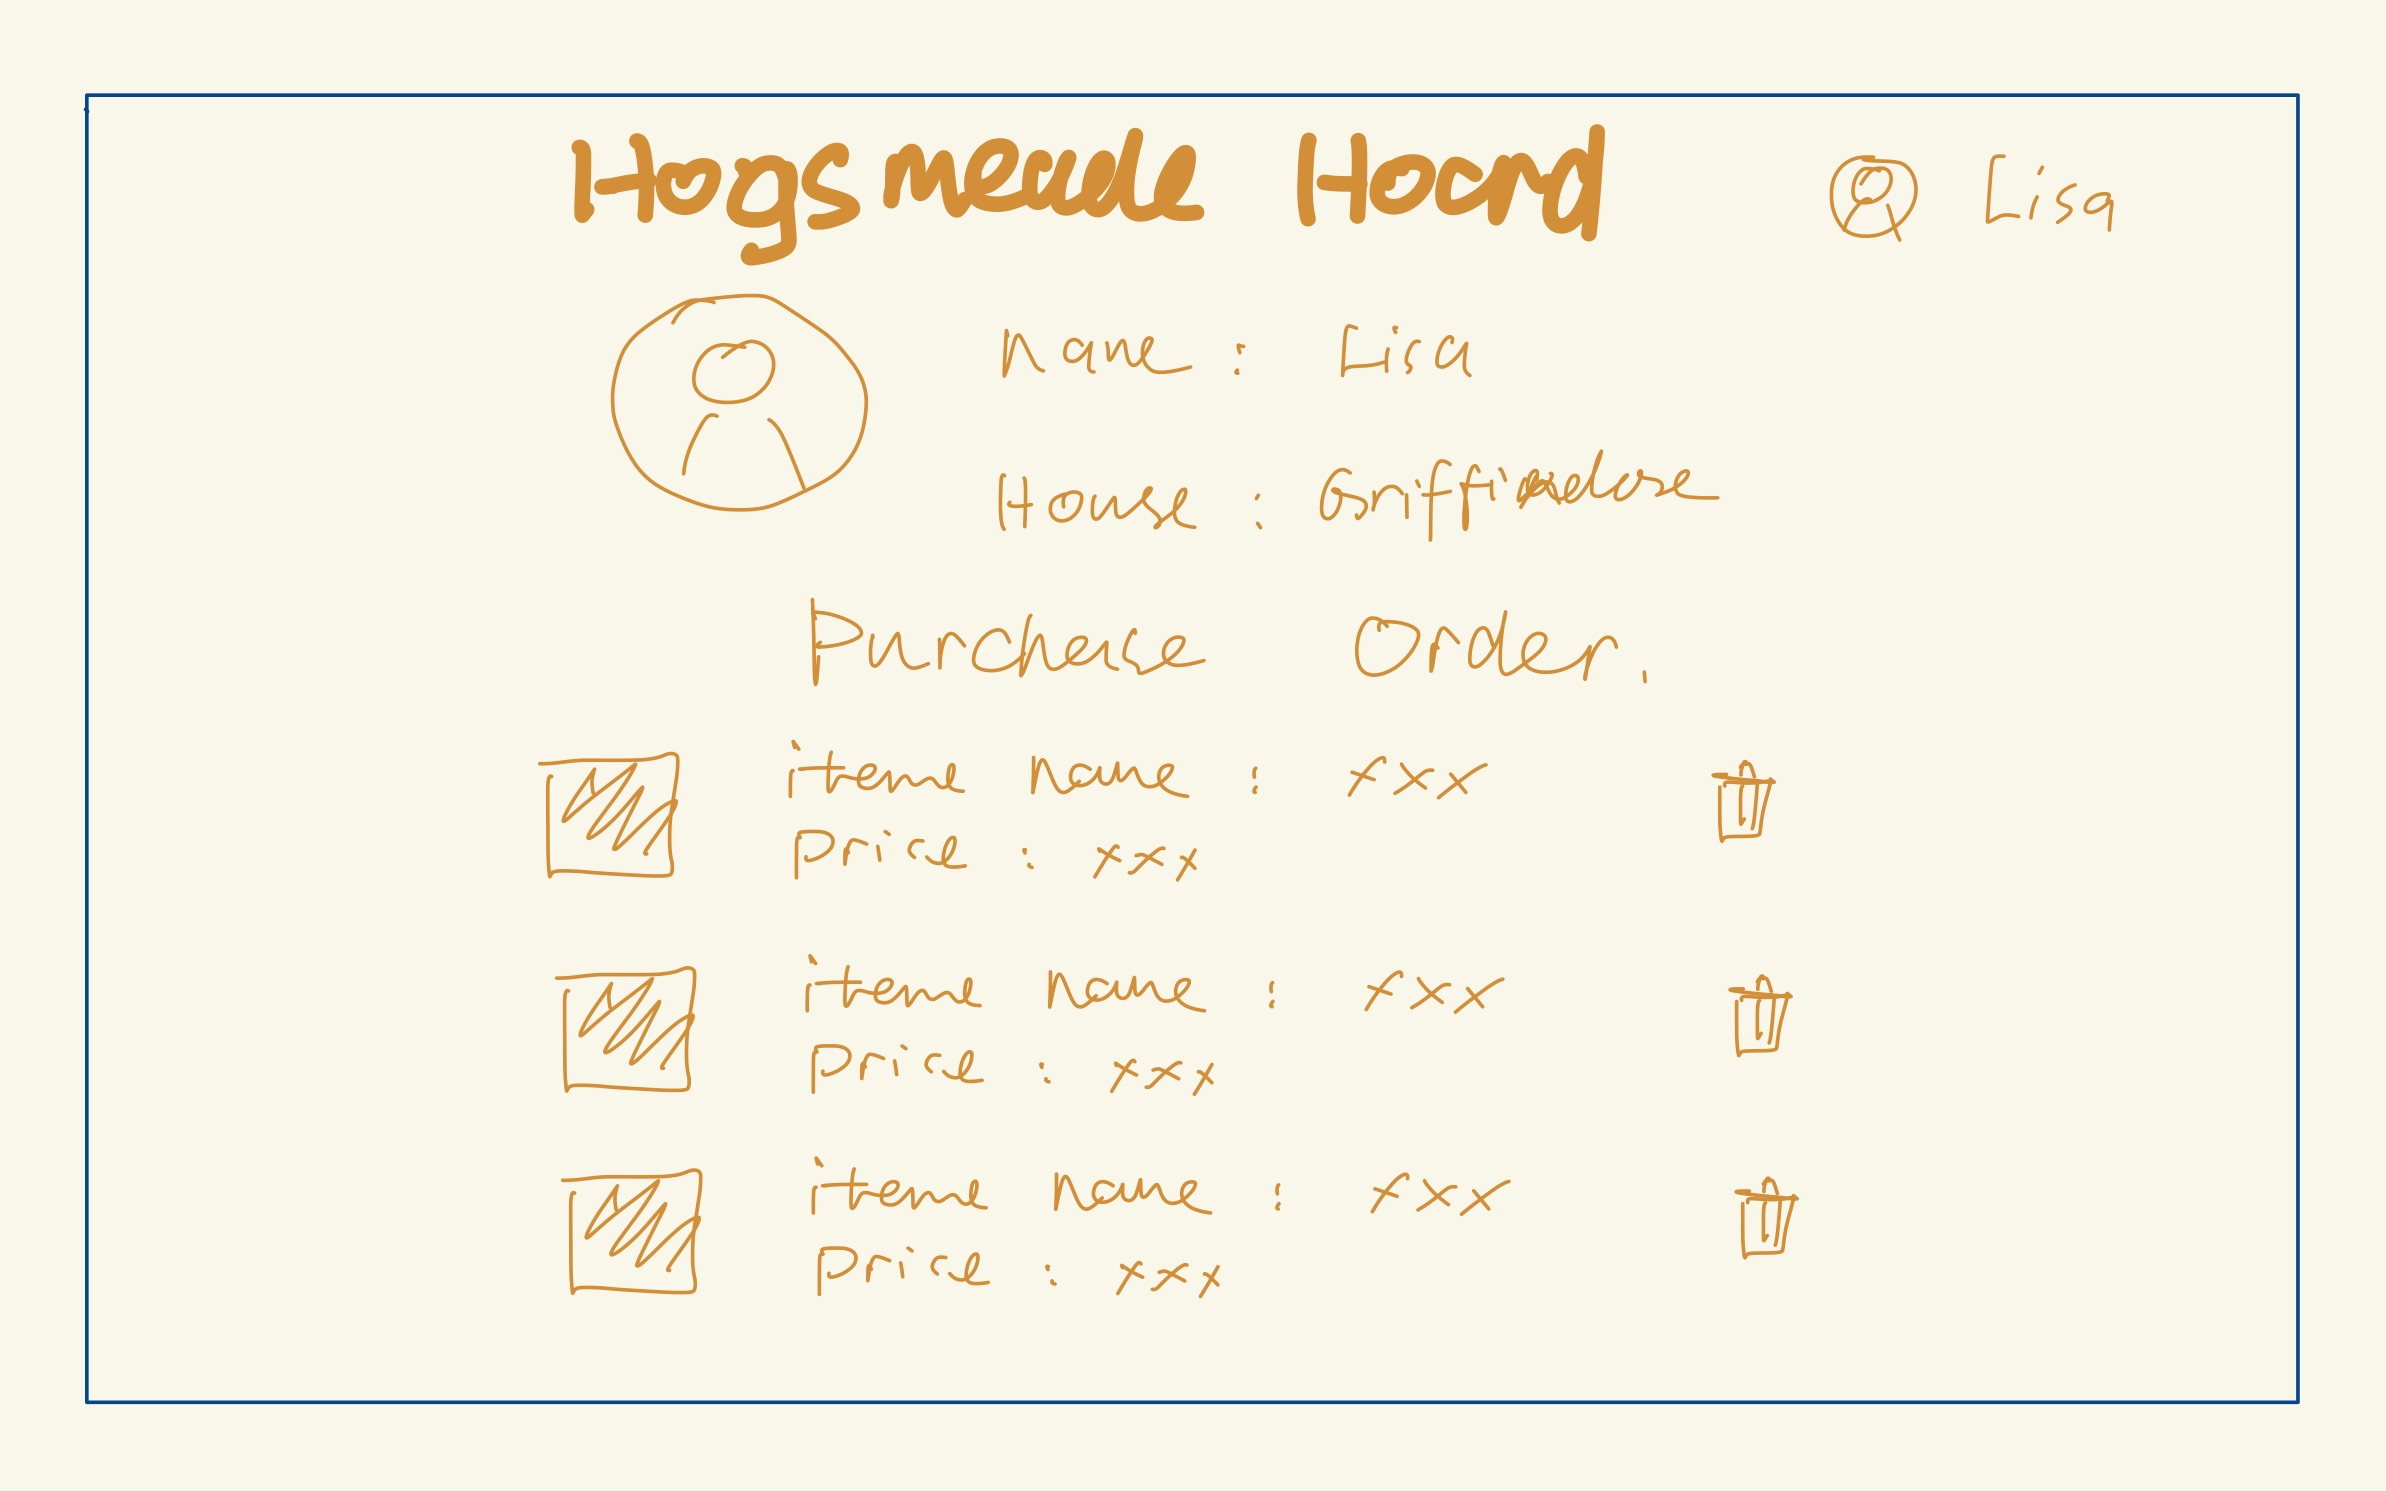 Hogsmeade Hoard
Lisa
Name : Lisa
House :
Purchase Order.
item name : xxx
Price : xxx
item name : xxx
Price : xxx
item name : xxx
Price : xxx